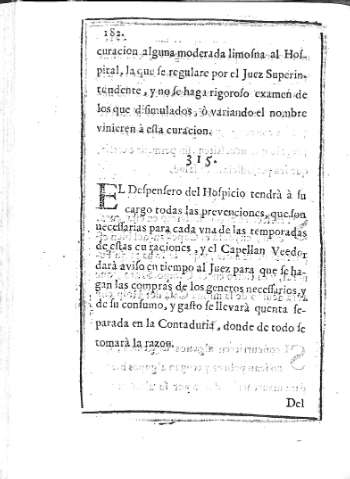 182.
curacion alguna moderada limosna al Hos-
pital, la que se regulare por el Juez Superin-
tendente, y no se haga rigoroso examen de
los que disimulados, ò variando el nombre
vinieren à esta curacion.
315.
EL Despensero del Hospicio tendrà à su
cargo todas las prevenciones, que son
necessarias para cada vna de las temporadas
de estas curaciones, y el Capellan Veedor
darà aviso en tiempo al Juez para que se ha-
gan las compras de los generos necessarios, y
de su consumo, y gasto se llevarà quenta se-
parada en la Contaduria, donde de todo se
tomarà la razon.
Del